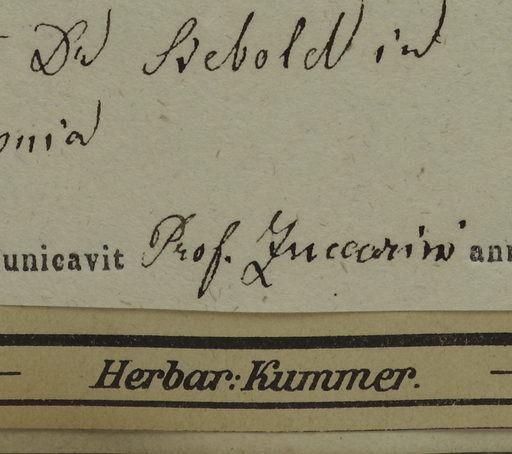 Dr Siebold in
onia
unicavit Prof. Zuccarini ann
Herbar: Kummer.